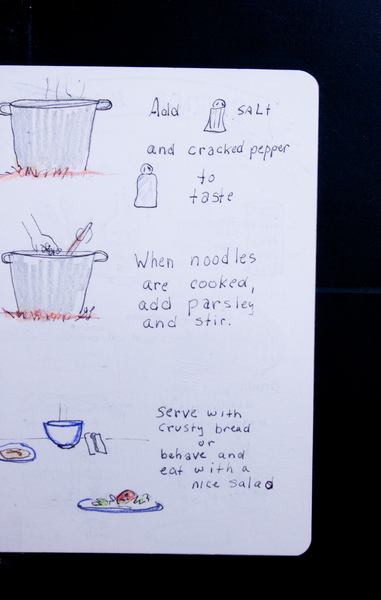 Add SALT
and cracked pepper
to
taste
When noodles
are cooked,
add parsley
and stir.
Serve with
crusty bread
or
behave and
eat with a
nice salad